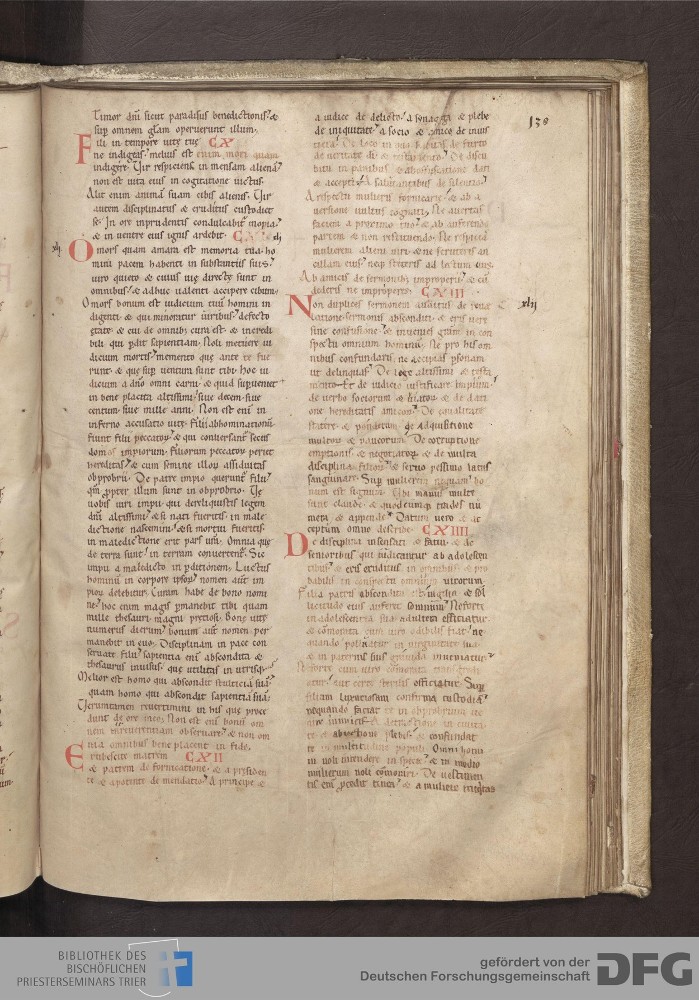 Timor dni sicut paradisus benedictionis & 
sup omnem glam operuerunt illum.
ili in tempore uitę tuę CX
ne indigeas. melius est enim mori quam
indigere. Uir respiciens in mensam alienā
non est uita eius in cogitatione uictus.
Alit enim animā suam cibis alienis. Uir
autem disciplinatus & eruditus custodiet
se. In ore inprudentis condulcabit inopia
& in uentre eius ignis ardebit.
O mors quam amara est memoria tua. ho
mini pacem habenti in substantiis suis.
uiro quieto & cuius uię directę sunt in
omnibus & adhuc ualenti accipere cibum.
O mors bonum est iudicium tuū homini in
digenti & qui minoratur uiribus defecto
ętate & cui de omnib; cura est & incredi
bili qui pdit sapientiam. Noli metuere iu
dicium mortis. memento quę ante te fue
runt & quę sup uentura sunt tibi. hoc iu
dicium a dño omni carni & quid supueniet
in bene placita altissimi. siue decem siue
centum siue mille anni. Non est eni in
inferno accusatio uitę. filii abhominationū
fiunt filii peccatoꝝ & qui conuersant secus
domos impiorum. filiorum peccatoꝝ periet
hereditas & cum semine illoꝝ assiduitas
obprobrii. De patre impio queruntˀ filii
qm propter illum sunt in obprobrio. Ue
uobis uiri impii qui dereliquistis legem
dni altissimi & si nati fueritis in male
dictione nascemini. & si mortui fueritis
in maledictione erit pars uri. Omnia quę
de terra sunt in terram conuertent. Sic
impii a maledicto in pditionem. Luctus
hominū in corpore ipsoꝝ nomen aut im
pioꝝ delebitur. Curam habe de bono nomi
ne. hoc enim magis pmanebit tibi quam
mille thesauri magni preciosi. Bonę uitę
numerus dierum bonum aut nomen per
manebit in euo. Disciplinam in pace con
seruate filii sapientia eni abscondita &
thesaurus inuisus quę utilitas in utrisq;
Melior est homo qui abscondit stulticiā suā
quam homo qui abscondit sapientiā suā.
Ueruntamen reuertimini in his quę proce
dunt de ore meo. Non est eni bonū om
nem inreuerentiam obseruare & non om
nia omnibus bene placent in fide.
Erubescite matrem CXII
& patrem de fornicatione & a presiden
te & a potente de mendatio. A principe &
a iudice de delicto. a synagoga & plebe
de iniquitate. a socio & amico de inius
ticia. & loco in quo habitas de furto
de ueritate di & testamento. De discu
bitu in panibus & ab offuscatione dati
& accepti. A salutantibus de silentio.
A respectu mulieris fornicarię & ab a
uersione uultus cognati. Ne auertas
faciem a proximo tuo & ab auferendo
partem & non restituendo. Ne respicias
mulierem alieni uiri & ne scruteris an
cillam eius. neq; steteris ad lectum eius.
Ab amicis de sermonib; improperii & cū
dederis ne improperes. CXIII
Non duplices sermonem auditus de reue
latione sermonis absconditi & eris uere
sine confusione & inuenies gram in con
spectu omnium hominū. Ne pro his om
nibus confundaris. ne accipias psonam
ut delinquas. De lege altissimi & testa
mento. Et de iudicio iustificare impium.
de uerbo sociorum & uiatoꝝ & de dati
one hereditatis amicoꝝ. De equalitate
staterę & ponderum. de adquisitione
multoꝝ & paucorum. De corruptione
emptionis & negotiatoꝝ & de multa
disciplina filioꝝ & seruo pessimo latus
sanguinare. Sup mulierem nequam bo
num est signum. Ubi manus multę
sunt claude & quodcumq; trades nu
mera & appende. Datum uero & ac
ceptum omne describe. CXIIII
De disciplina insensati & fatui & de
senioribus qui iudicantur ab adolescen
tibus & eris eruditus in omnibus & pro
babilis in conspectu omnium uirorum.
Filia patris absconsa est uigilia & sol
licitudo eius aufert somnum. Ne forte
in adolescentia sua adultera efficiatur
& commorata cum uiro odibilis fiat. ne
quando polluatur in uirginitate sua
& in paternis suis grauida inueniatur.
Ne forte cum uiro commorata transgredi
atur. aut certe sterilis efficiatur. Sup
filiam luxuriosam confirma custodiā
nequando faciat te in obprobrium ue
nire inimicis. A detractione in ciuita
te & abiectione plebis & confundat
te in multitudine populi. Omni homi
ni noli intendere in specie & in medio
mulierum noli commorari. De uestimen
tis eni procedit tinea & a muliere iniquitas
130
xlj
xlij
BIBLIOTHEK DES
BISCHÖFLICHEN
PRIESTERSEMINARS TRIER
gefördert von der
Deutschen Forschungsgemeinschaft
DFG